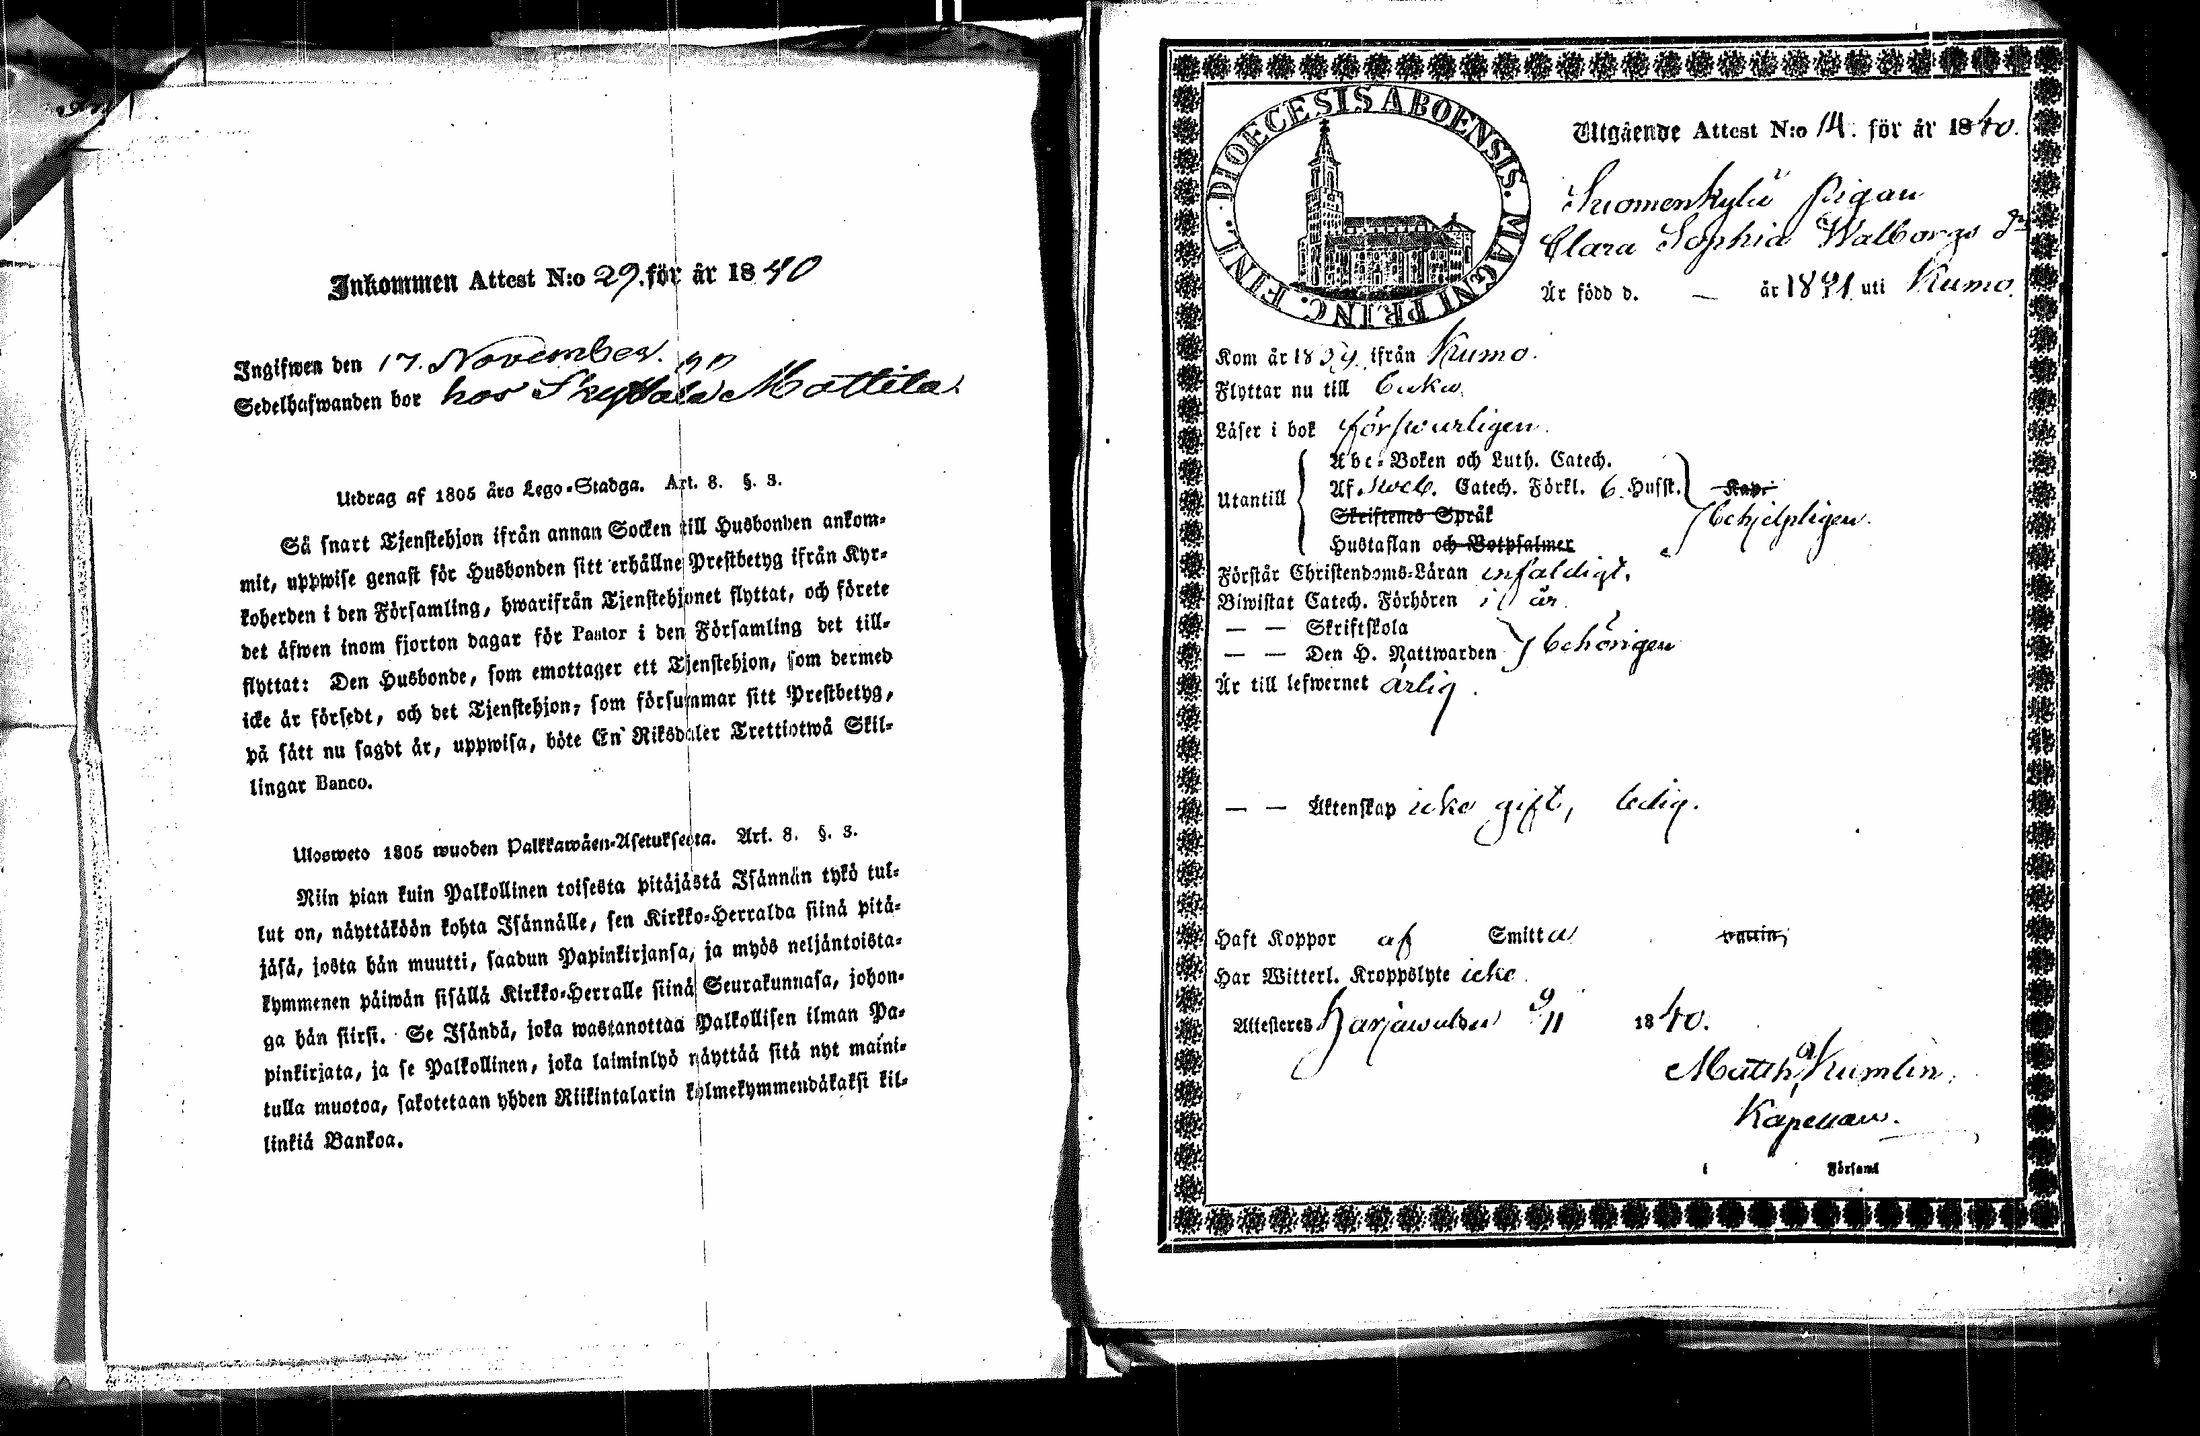 Inkommen Attest N:o 29. för år 1840
Ingifwen den 17. November. 40
Sedelhafwanden bor hos Skyttälä Mattila.
Utdrag af 1805 års Lego-Stadga. Art. 8. §. 3.
Så snart Tjenstehjon ifrån annan Socken till Husbonden ankom-
mit, uppwise genast för Husbonden sitt erhållne Prestbetyg ifrån Kyr-
koherden i den Församling, hwarifrån Tjenstehjonet flyttat, och förete
det åfwen inom fjorton dagar för Pastor i den Församling det till-
flyttat: Den Husbonde, som emottager ett Tjenstehjon, som dermed
icke är försedt, och det Tjenstehjon, som försummar sitt Prestbetyg,
på sått nu sagdt är, uppwisa, böte En Riksdaler Trettiotwå Skil-
lingar Banco.
Ulosweto 1805 wuoden Palkkawäen-Asetuksesta. Art. 8. §. 3.
Niin pian kuin Palkollinen toisesta pitäjästä Isännän tykö tul-
lut on, näyttäköön kohta Isännälle, sen Kirkko-Herralda siinä pitä-
jäsä, josta hän muutti, saadun Papinkirjansa, ja myös neljäntoista-
kymmenen päiwän sisällä Kirkko-Herralle siinä Seurakunnasa, johon-
ga hän siirsi. Se Isändä, joka wastanottaa Palkollisen ilman Pa-
pinkirjata, ja se Palkollinen, joka laiminlyö näyttää sitä nyt maini-
tulla muotoa, sakotetaan yhden Riikintalarin kolmekymmendäkaksi kil-
linkiä Bankoa.
DIOECESIS ABOENSIS. MAGNI PRINC. FINL.
Utgående Attest N:o 14. för år 1840.
Suomenkylä Pigan
Clara Sophia Walborgs dr
Är född d. — år 1821 uti Kumo.
Kom år 1839 ifrån Kumo.
Flyttar nu till
Läser i bok förswarligen.
Abc-Boken och Luth. Catech.
Utantill Af Sweb. Catech. Förkl. 6 Hufst. Kap.
Skriftenes Språk behjelpligen.
Hustaflan och Botpsalmer
Förstår Christendoms-Läran enfaldigt.
Biwistat Catech. Förhören i år.
— — Skriftskola
— — Den H. Nattwarden behörigen
Är till lefwernet ärlig.
— — Äktenskap icke gift, ledig.
Haft Koppor af Smitta waccin,
Har Witterl. Kroppslyte icke.
Attesteres Harjawalda 9/11 1840.
Matth. Kumlin.
Kapellan.
i Församl